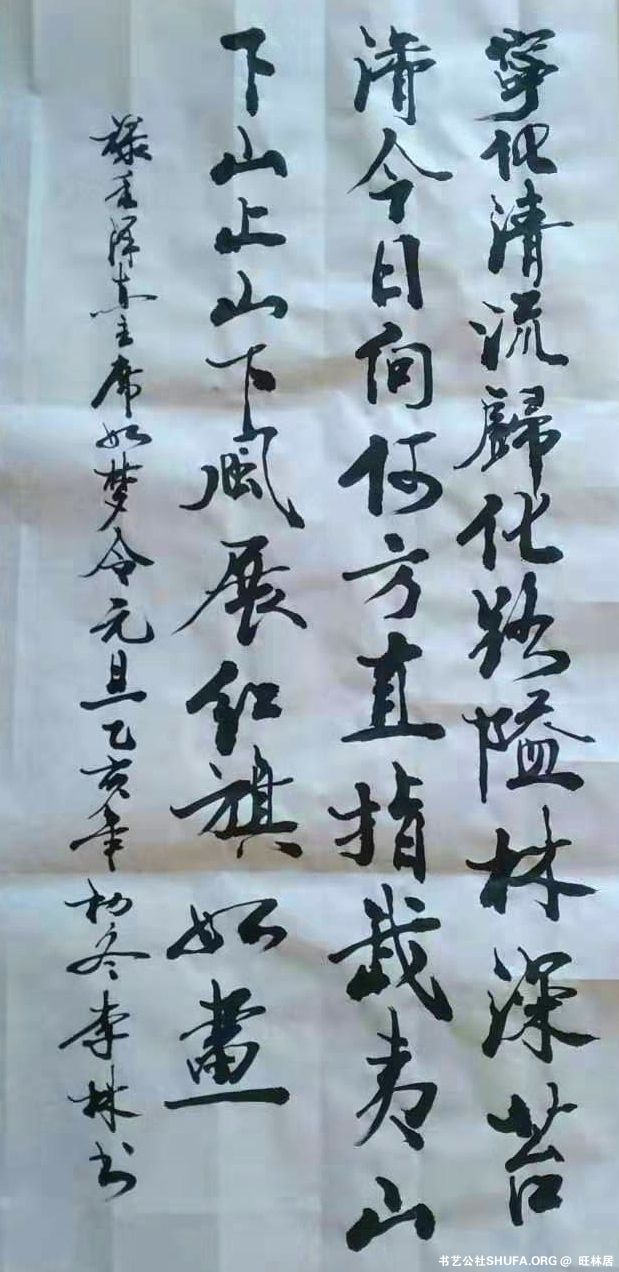 寧化清流歸化路隘林深苔
滑今日向何方直指武夷山
下山上山下風展紅旗如畫
錄毛泽东主席如梦令元旦乙亥年初冬李林书
书艺公社SHUFA.ORG @ 旺林居